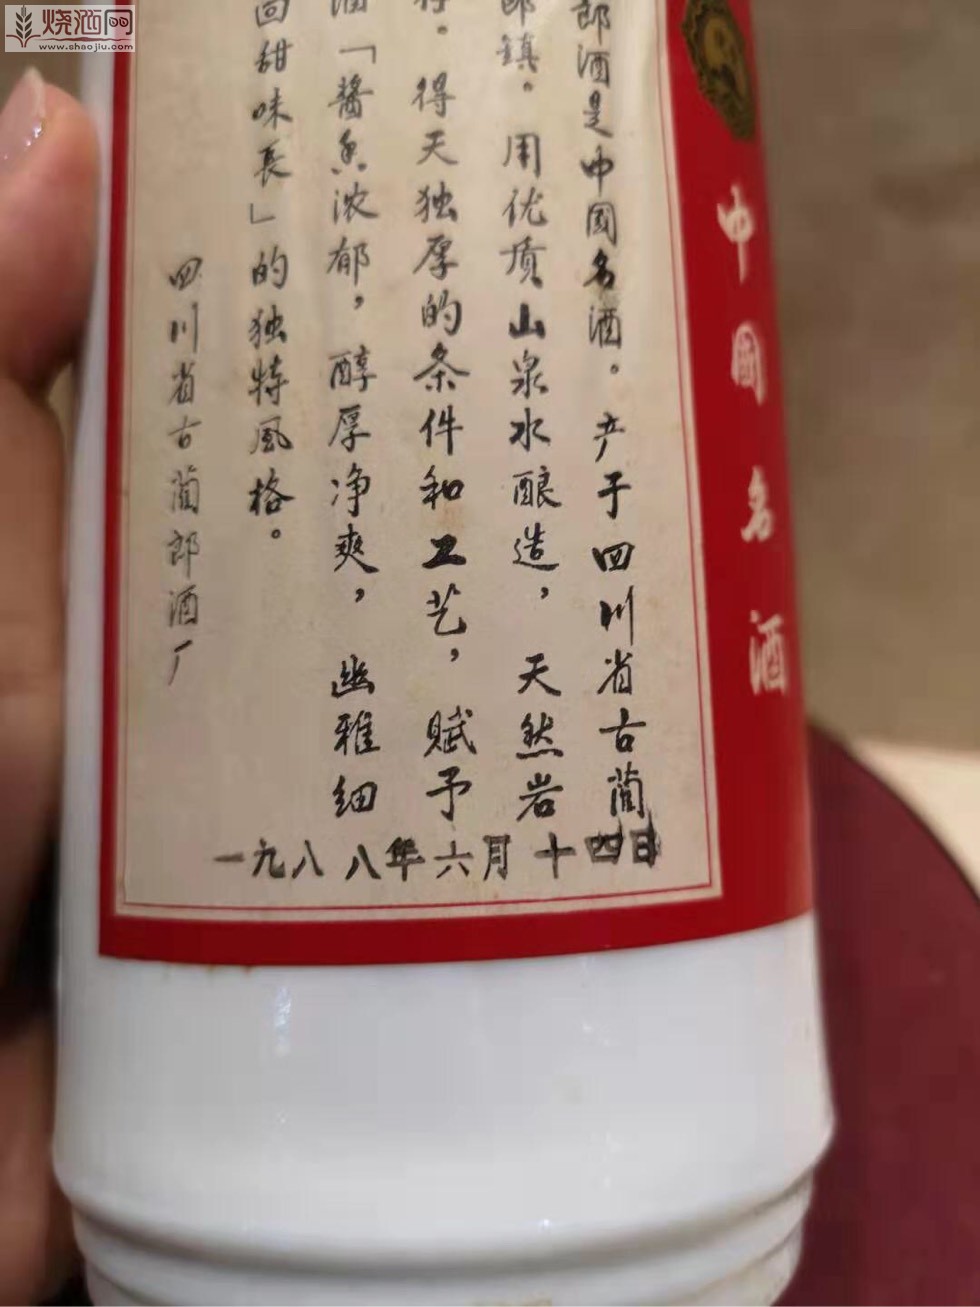 烧酒网
www.shaojiu.com
中國名酒
郎酒是中國名酒。产于四川省古蔺
郎鎮。用优质山泉水酿造，天然岩
。得天独厚的条件和工艺，赋予
酒「醬香浓郁，醇厚净爽，幽雅细
回甜味長」的独特風格。
四川省古蔺郎酒厂
一九八八年六月十四日